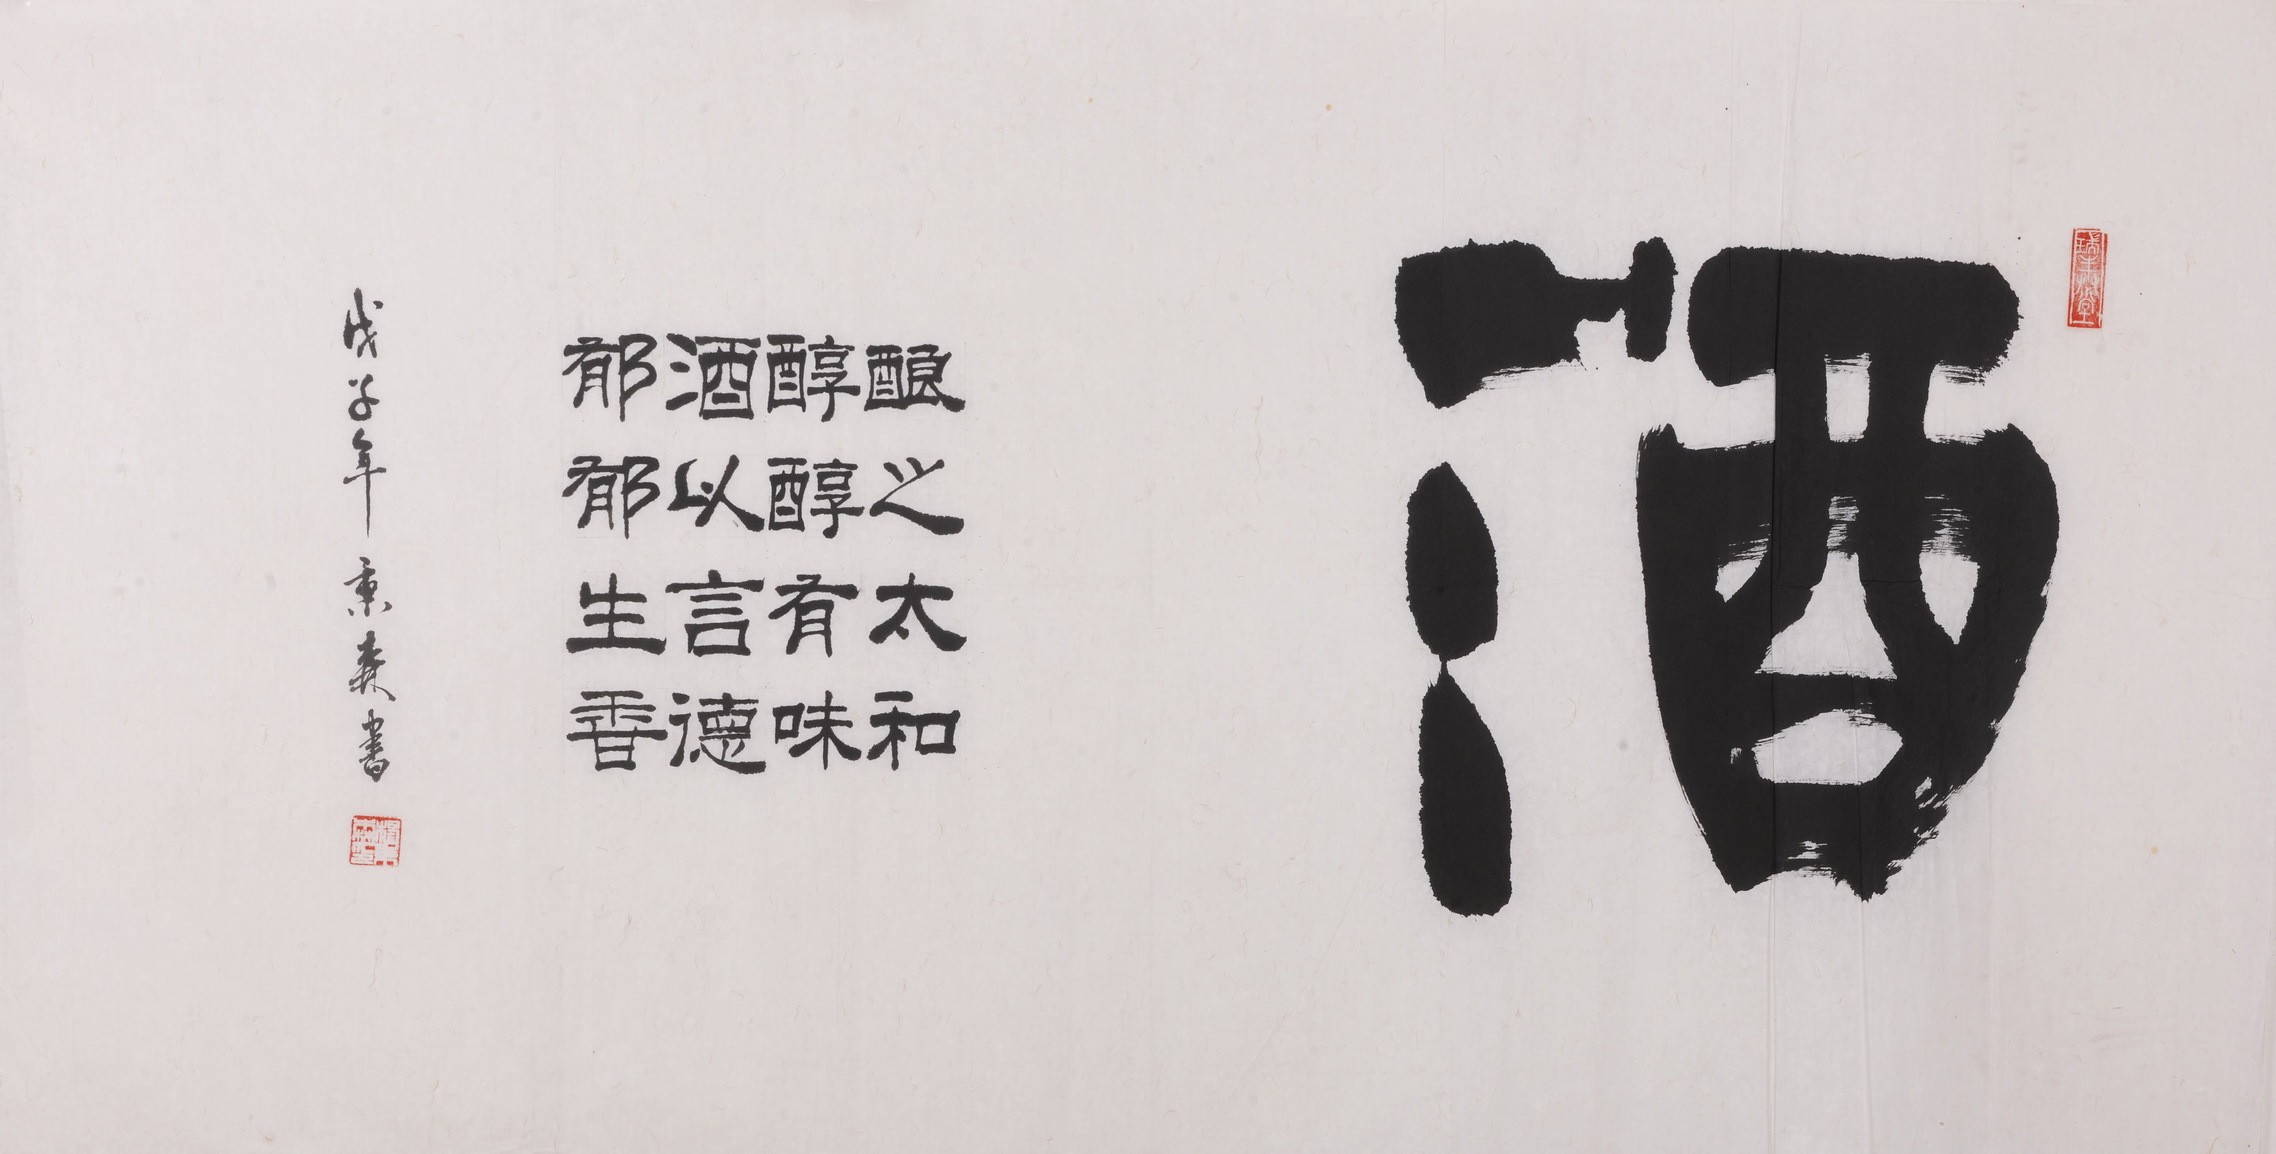 酒
酿之太和
醇醇有味
酒以言德
郁郁生香
戊子年秉彝書